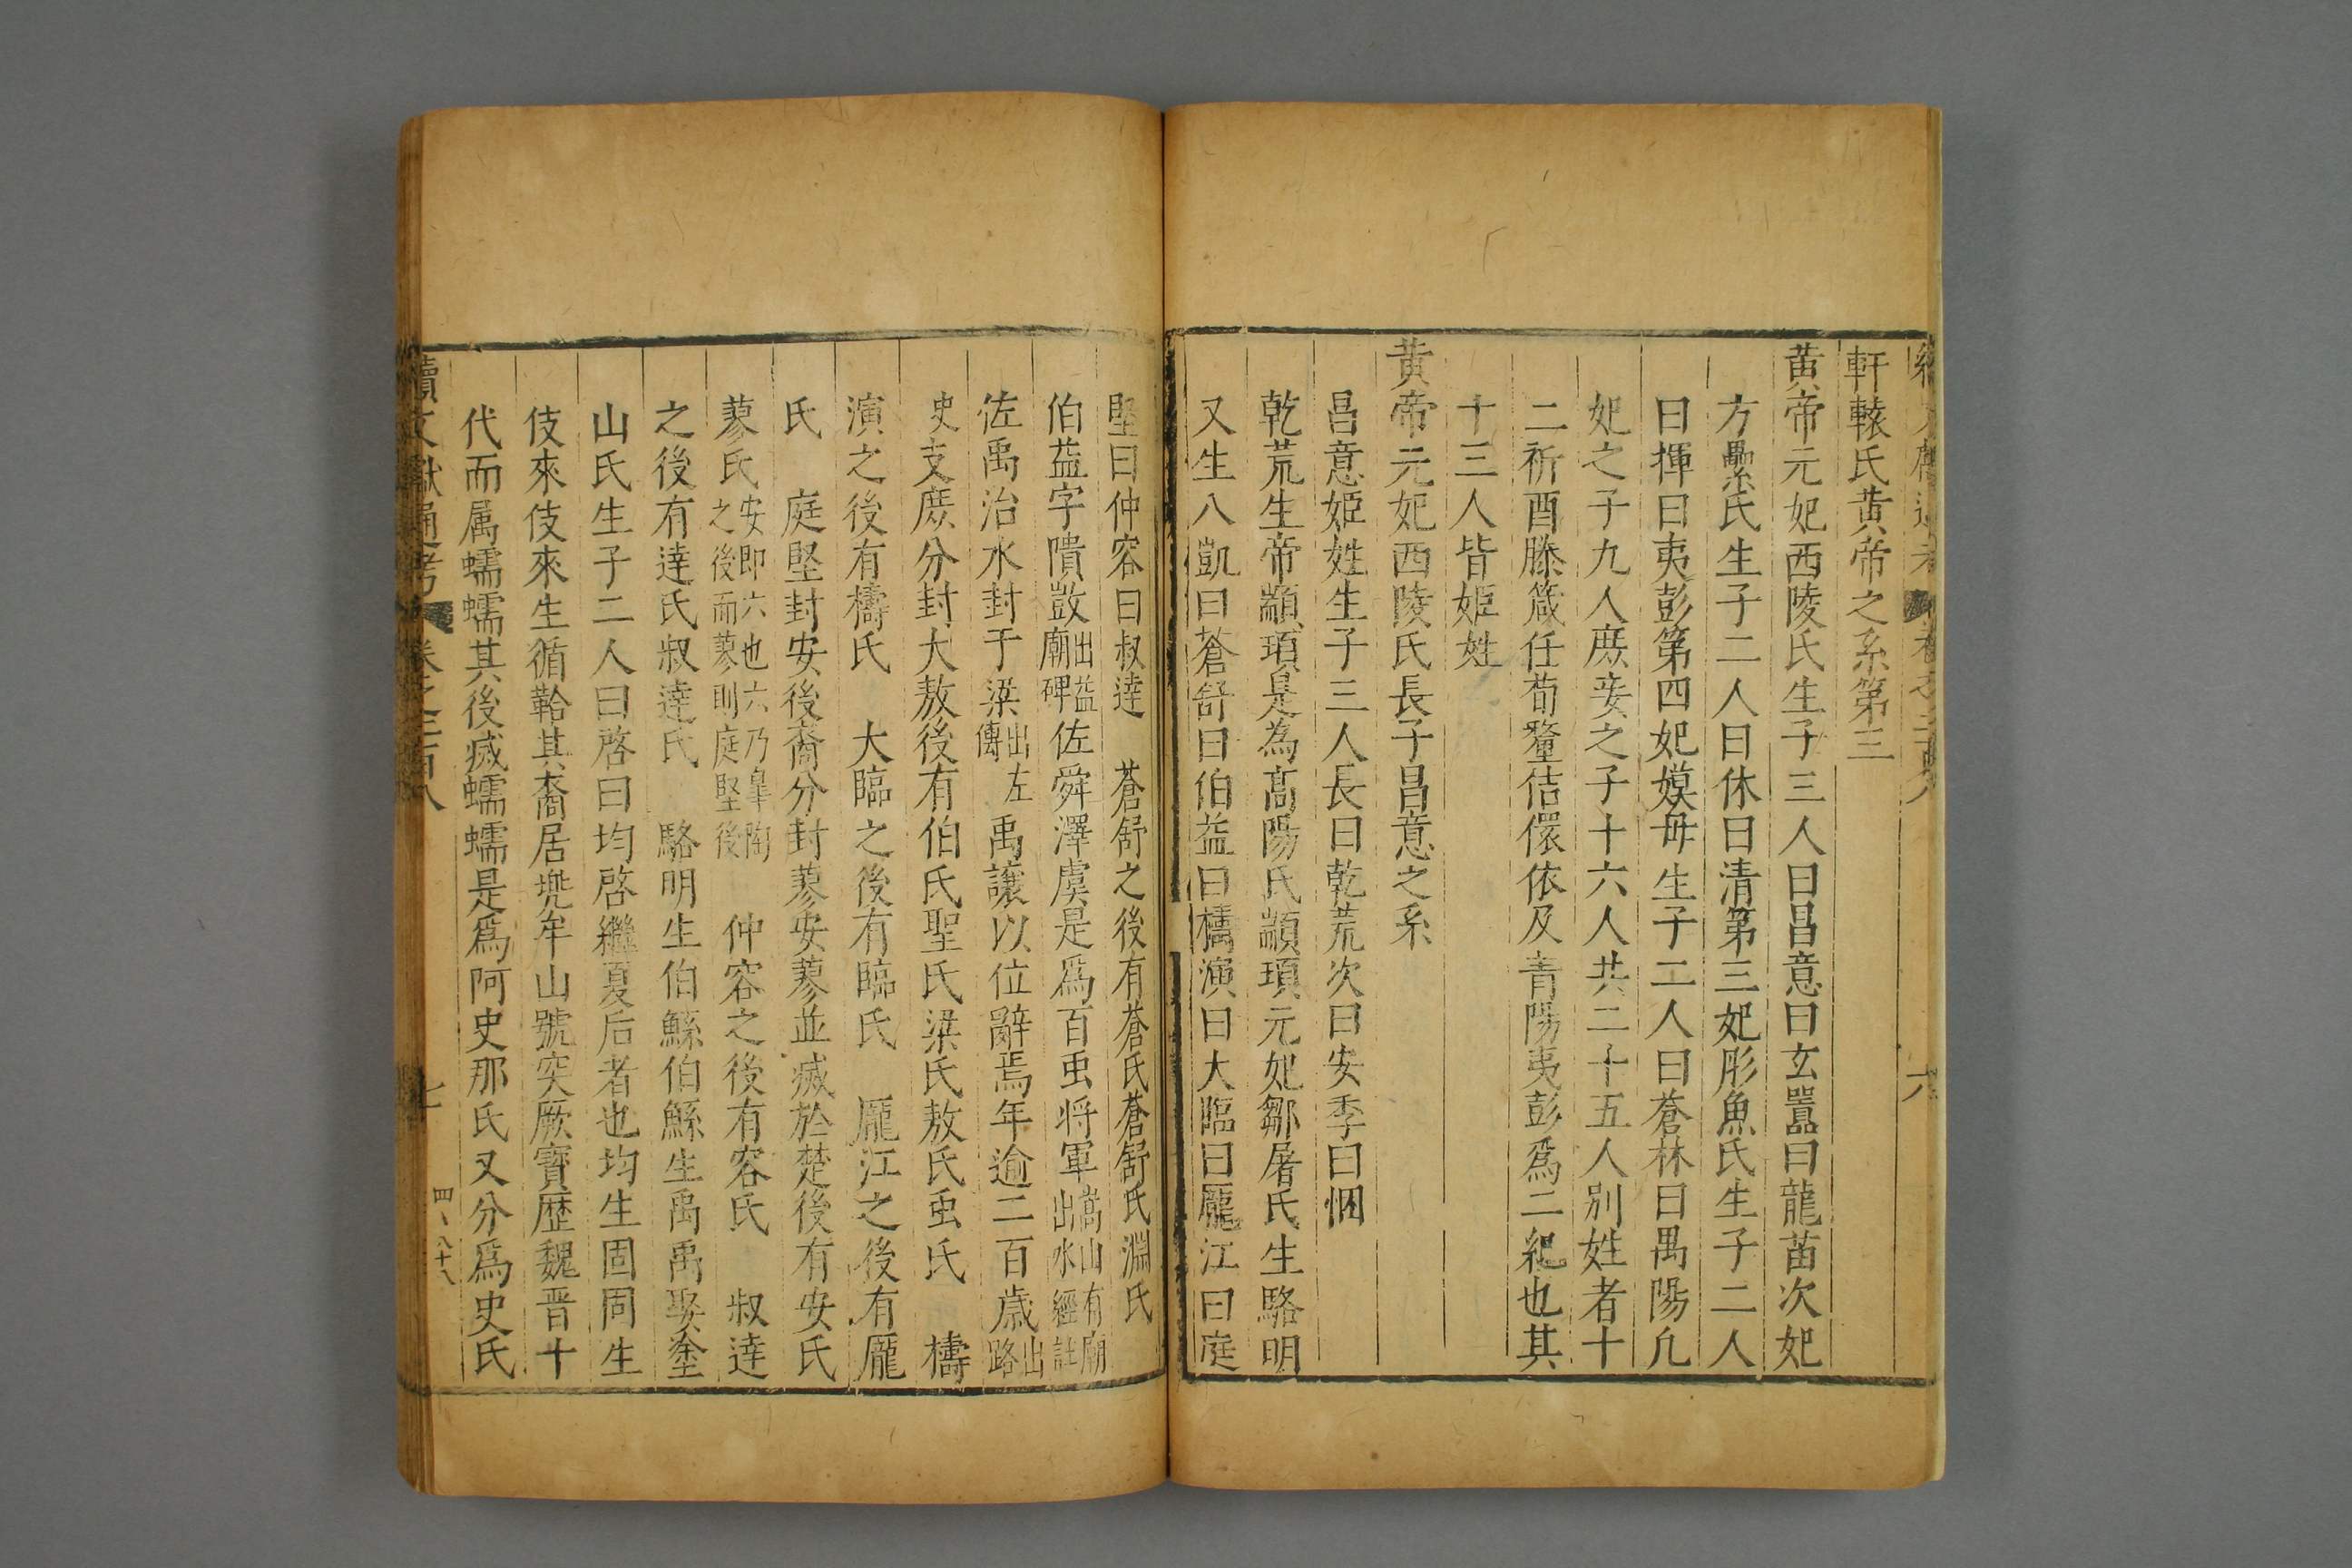 軒轅氏黃帝之系第三
黃帝元妃西陵氏生子三人曰昌意曰玄囂曰龍苗次妃
方纍氏生子二人曰休曰清第三妃彤魚氏生子二人
曰揮曰夷彭第四妃嫫母生子二人曰蒼林曰禺陽凢
妃之子九人庶妾之子十六人共二十五人别姓者十
二祈酉滕箴任荀釐佶儇依及青陽夷彭爲二紀也其
十三人皆姬姓
黃帝元妃西陵氏長子昌意之系
昌意姬姓生子三人長曰乾荒次曰安季曰悃
乾荒生帝顓頊是為髙陽氏顓頊元妃鄒屠氏生駱明
又生八凱曰蒼舒曰伯益曰檮演曰大臨曰龎江曰庭
堅曰仲容曰叔達　蒼舒之後有蒼氏蒼舒氏淵氏
伯益字隤敳出益廟碑佐舜澤虞是爲百䖝将軍嵩山有廟出水經註
佐禹治水封于梁出左傳禹讓以位辭焉年逾二百歲出路
史支庶分封大敖後有伯氏聖氏梁氏敖氏䖝氏　檮
演之後有檮氏　大臨之後有臨氏　龎江之後有龎
氏　庭堅封安後裔分封蓼安蓼並滅於楚後有安氏
蓼氏安即六也六乃臯陶之後而蓼則庭堅後　仲容之後有容氏　叔達
之後有達氏叔達氏　駱明生伯鯀伯鯀生禹禹娶塗
山氏生子二人曰啓曰均啓繼夏后者也均生固固生
伎來伎來生循鞈其裔居兠牟山號突厥寳歷魏晋十
代而属蠕蠕其後滅蠕蠕是爲阿史那氏又分爲史氏
續文獻通考　卷之二百八　七　四、八十八